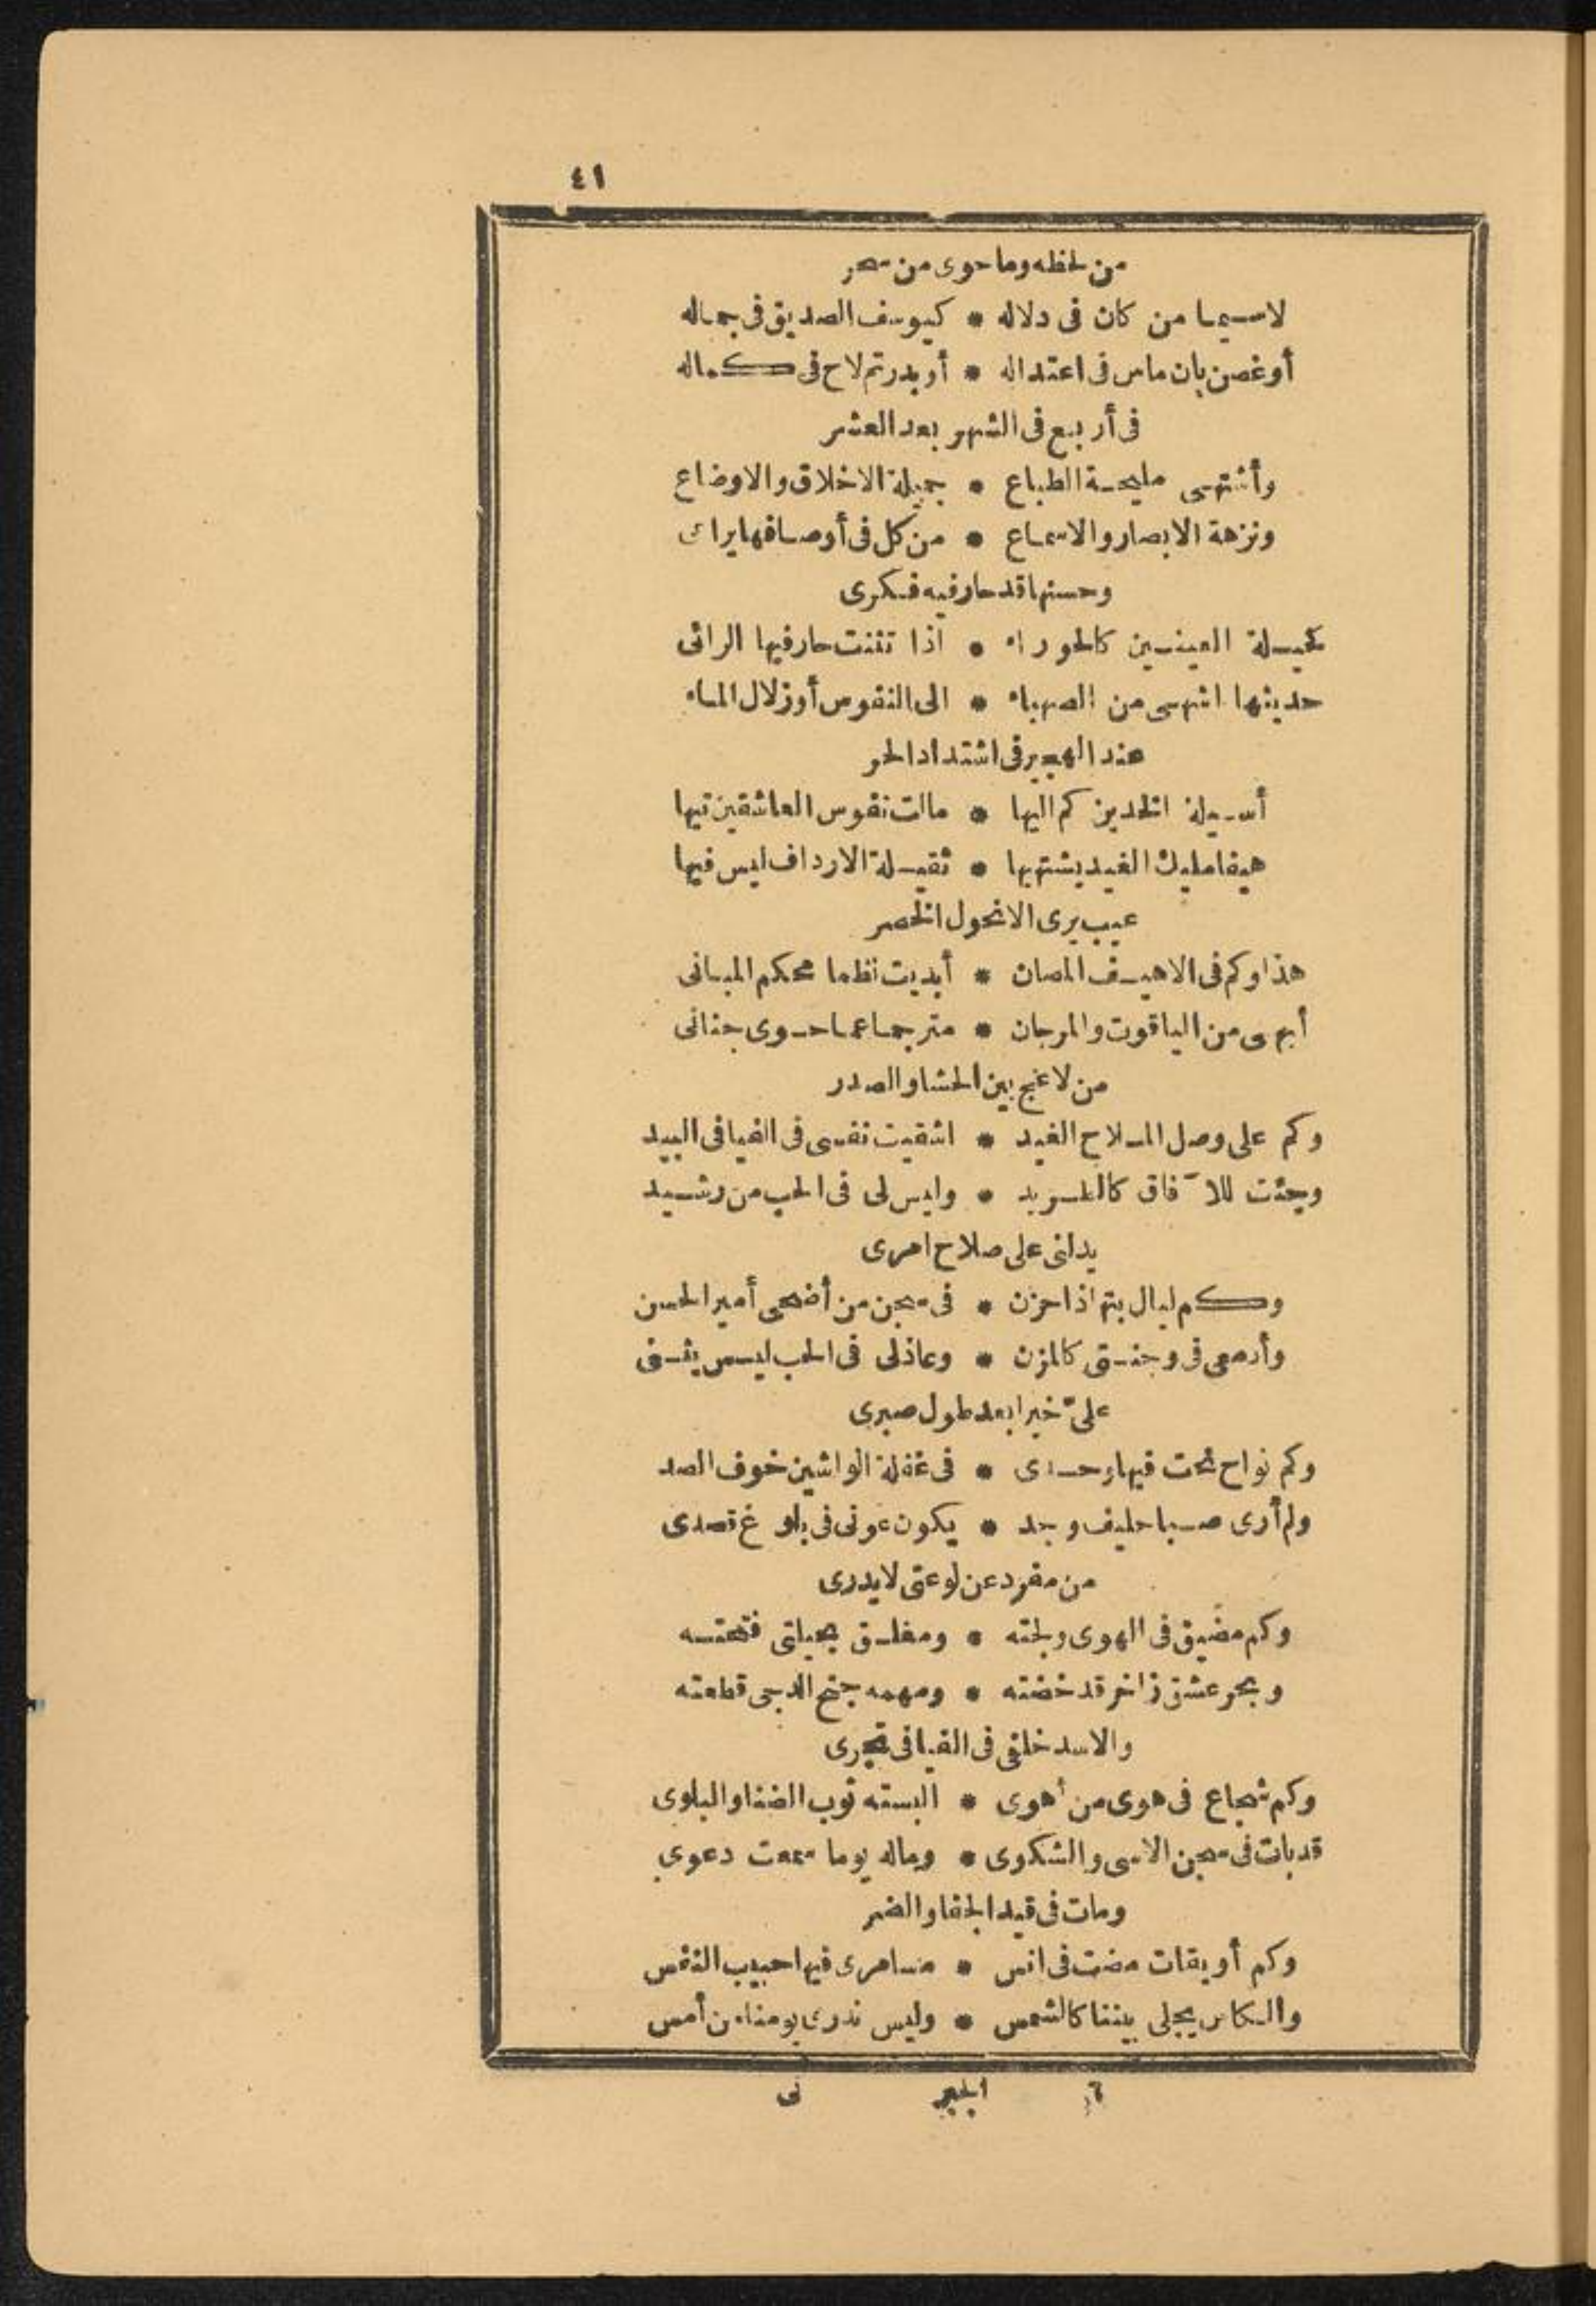 ٤١
من لحظه وما حوى من سحر
لاسيما من كان فى دلاله * كيوسف الصديق فى جماله
أوغصن بان ماس فى اعتداله * أو بدرتم لاح فى كماله
فى أربع فى الشهر بعد العشر
وأشتهى مليحة الطباع * جميلة الاخلاق والاوضاع
ونزهة الابصار والاسماع * من كل فى أوصافها يراعى
وحسنها قد حار فيه فكرى
كحيلة العينين كالحوراء * اذا تثنت حار فيها الرائى
حديثها اشهى من الصهباء * الى النفوس أوزلال الماء
عند الهجير فى اشتداد الحر
أسيلة الخدين كم اليها * مالت نفوس العاشقين تيها
هيفا مليك الغيد يشتهيها * ثقيلة الارداف ليس فيها
عيب يرى الانحول الخصر
هذا وكم فى الاهيف المصان * أبديت نظما محكم المبانى
أبهى من الياقوت والمرجان * مترجما عما حوى جنانى
من لاعج بين الحشا والصدر
وكم على وصل الملاح الغيد * اشقيت نفسى فى الفيافى البيد
وجئت للآفاق كالطريد * وليس لى فى الحب من رشيد
يدلنى على صلاح امرى
وكم ليال بتها ذا حزن * فى سجن من أضحى أمير الحسن
وأدمعى فى وجنتى كالمزن * وعاذلى فى الحب ليس يثنى
علىّ خيرا بعد طول صبرى
وكم نواح نحت فيها وحدى * فى غفلة الواشين خوف الصد
ولم أرى صبا حليف وجد * يكون عونى فى بلوغ قصدى
من مفرد عن لوعتى لايدرى
وكم مضيق فى الهوى ولجته * ومغلق بحيلتى فتحته
وبحر عشق زاخر قد خضته * ومهمه جنح الدجى قطعته
والاسد خلفى فى الفيافى تجرى
وكم شجاع فى هوى من أهوى * البسته ثوب الضنا والبلوى
قد بات فى سجن الاسى والشكوى * وماله يوما سمعت دعوى
ومات فى قيد الجفا والضر
وكم أويقات مضت فى انس * مسامرى فيها حبيب النفس
والكاس يجلى بيننا كالشمس * وليس ندرى يومنا من أمس
٦ الجبر نى